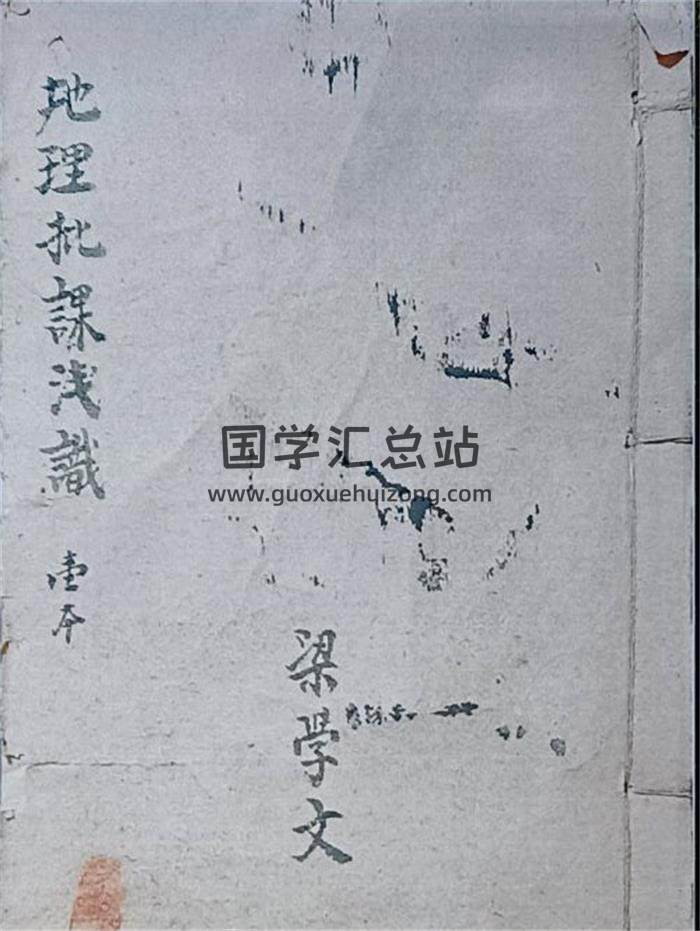 地理批課浅識
壹本
国学汇总站
www.guoxuehuizong.com
梁学文